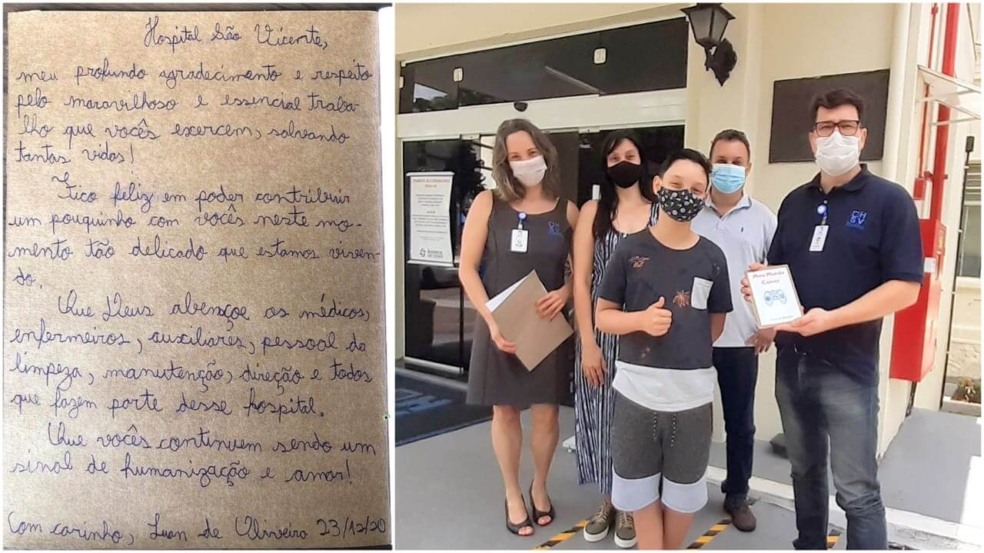 Hospital São Vicente,
meu profundo agradecimento e respeito
pelo maravilhoso e essencial traba-
lho que vocês exercem, salvando
tantas vidas!
Fico feliz em poder contribuir
um pouquinho com vocês neste mo-
mento tão delicado que estamos viven-
do.
Que Deus abençoe os médicos,
enfermeiros, auxiliares, pessoal da
limpeza, manutenção, direção e todos
que fazem parte desse hospital.
Que vocês continuem sendo um
sinal de humanização e amor!
Com carinho, Luan de Oliveira 23/12/20
CH
SV
Meu Mundo
Gamer